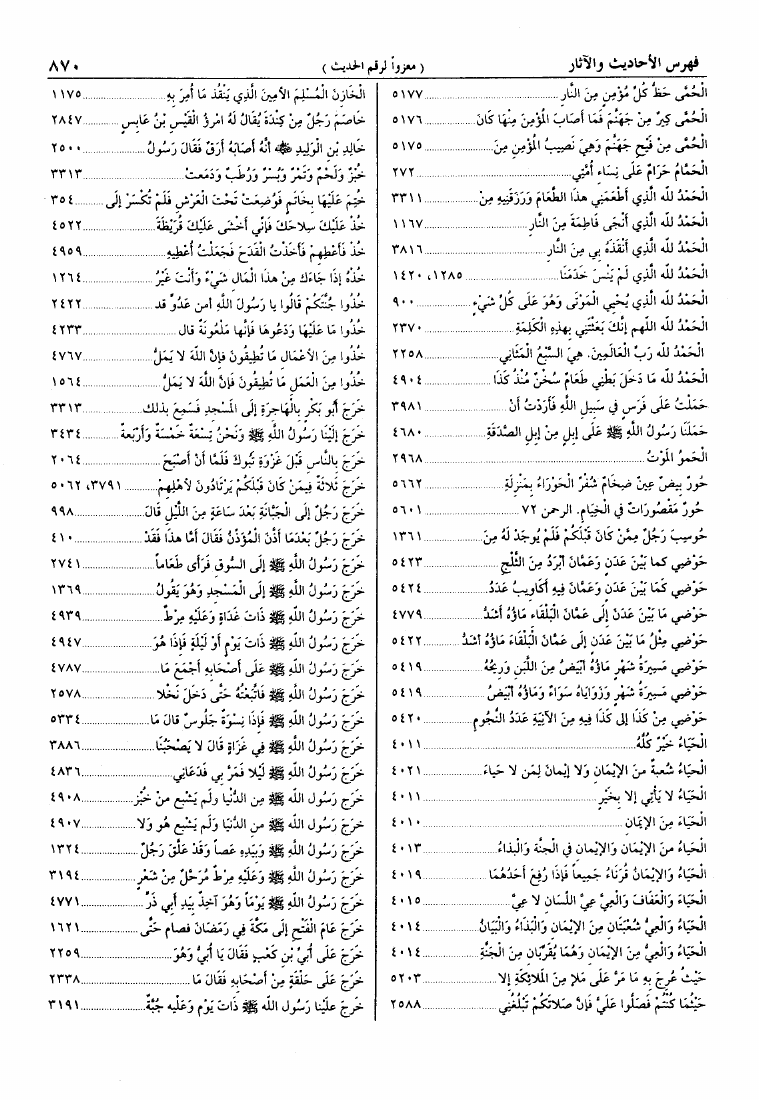 فهرس الأحاديث والآثار ( معزواً لرقم الحديث ) ٨٧٠
الْحُمَّى حَظُّ كُلِّ مُؤْمِنٍ مِنَ النَّارِ ٥١٧٧
الْحُمَّى كِيرٌ مِنْ جَهَنَّمَ فَمَا أَصَابَ الْمُؤْمِنَ مِنْهَا كَانَ ٥١٧٦
الْحُمَّى مِنْ فَيْحِ جَهَنَّمَ وَهِيَ نَصِيبُ الْمُؤْمِنِ مِنَ ٥١٧٥
الْحَمَّامُ حَرَامٌ عَلَى نِسَاءِ أُمَّتِي ٢٧٢
الْحَمْدُ لله الَّذِي أَطْعَمَنِي هذَا الطَّعَامَ وَرَزَقَنِيهِ مِنْ ٣٣١١
الْحَمْدُ لله الَّذِي أَنْجَى فَاطِمَةَ مِنَ النَّارِ ١١٦٧
الْحَمْدُ لله الَّذِي أَنْقَذَهُ بِي مِنَ النَّارِ ٣٨١٦
الْحَمْدُ لله الَّذِي لَمْ يَنْسَ خَدَمَنَا ١٢٨٥، ١٤٢٠
الْحَمْدُ لله الَّذِي يُحْيِي الْمَوْتَى وَهُوَ عَلَى كُلِّ شَيْءٍ ٩٠٠
الْحَمْدُ لله اللهم إِنَّكَ بَعَثْتَنِي بِهذِهِ الْكَلِمَةِ ٢٣٧٠
الْحَمْدُ لله رَبِّ الْعَالَمِينَ. هِيَ السَّبْعُ الْمَثَانِي ٢٢٥٨
الْحَمْدُ لله مَا دَخَلَ بَطْنِي طَعَامٌ سُخْنٌ مُنْذُ كَذَا ٤٩٠٤
حَمَلْتُ عَلَى فَرَسٍ فِي سَبِيلِ اللَّهِ فَأَرَدْتُ أَنْ ٣٩٨١
حَمَلَنَا رَسُولُ اللَّهِ ﷺ عَلَى إِبِلٍ مِنْ إِبِلِ الصَّدَقَةِ ٤٦٨٠
الْحَمْوُ الْمَوْتُ ٢٩٦٨
حُورٌ بِيضٌ عِينٌ ضِخَامٌ شُفْرُ الْحَوْرَاءُ بِمَنْزِلَةِ ٥٦٦٢
حُورٌ مَقْصُورَاتٌ فِي الْخِيَامِ. الرحمن ٧٢ ٥٦٠١
حُوسِبَ رَجُلٌ مِمَّنْ كَانَ قَبْلَكُمْ فَلَمْ يُوجَدْ لَهُ مِنَ ١٣٦١
حَوْضِي كما بَيْنَ عَدَنٍ وَعَمَّانَ أَبْرَدُ مِنَ الثَّلْجِ ٥٤٢٣
حَوْضِي كَمَا بَيْنَ عَدَنٍ وَعَمَّانَ فِيهِ أَكَاوِيبُ عَدَدُ ٥٤٢٤
حَوْضِي مَا بَيْنَ عَدَنَ إِلَى عَمَّانَ الْبَلْقَاءِ مَاؤُهُ أَشَدُّ ٤٧٧٩
حَوْضِي مِثْلُ مَا بَيْنَ عَدَنِ إِلَى عَمَّانَ الْبَلْقَاءَ مَاؤُهُ أَشَدُّ ٥٤٢٢
حَوْضِي مَسِيرَةُ شَهْرٍ مَاؤُهُ أَبْيَضُ مِنَ اللَّبَنِ وَرِيحُهُ ٥٤١٩
حَوْضِي مَسِيرَةُ شَهْرٍ وَزَوَايَاهُ سَوَاءٌ وَمَاؤُهُ أَبْيَضُ ٥٤١٩
حَوْضِي مِنْ كَذَا إِلى كَذَا فِيهِ مِنَ الآنِيَةِ عَدَدُ النُّجُومِ ٥٤٢٠
الْحَيَاءُ خَيْرٌ كُلُّهُ ٤٠١١
الْحَيَاءُ شُعبةٌ منَ الإِيْمَانِ وَلا إِيْمانَ لِمَن لا حَياءَ ٤٠٢١
الْحَيَاءُ لا يَأْتِي إِلا بِخَيْرٍ ٤٠١١
الْحَيَاءُ مِنَ الإِيْمَانِ ٤٠١٠
الْحَيَاءُ مِنَ الإِيْمَانِ وَالإِيْمَانِ فِي الْجنَّةِ وَالْبَذاءُ ٤٠١٣
الْحَيَاءُ وَالإِيْمَانُ قُرَنَاءُ جَمِيعاً فَإِذَا رُفِعَ أَحَدُهُمَا ٤٠١٩
الْحَيَاءَ وَالْعَفَافَ وَالْعِيَّ عِيَّ اللِّسَانِ لا عِيَّ ٤٠١٥
الْحَيَاءُ وَالْعِيُّ شُعْبَتَانِ مِنَ الإِيْمَانِ وَالْبَذَاءُ وَالْبَيَانُ ٤٠١٤
الْحَيَاءُ وَالْعِيُّ مِنَ الإِيْمَانِ وَهُمَا يُقَرِّبَانِ مِنَ الْجَنَّةِ ٤٠١٤
حَيْثُ عُرِجَ بِهِ مَا مَرَّ عَلَى مَلإٍ مِنَ الْمَلائِكَةِ إلا ٥٢٠٣
حَيْثُمَا كُنْتُمْ فَصَلُّوا عَلَيَّ فَإِنَّ صَلاتَكُمْ تَبْلُغُنِي ٢٥٨٨
الْخَازِنُ الْمُسْلِمُ الأَمِينُ الَّذِي يَنْقُدُ مَا أُمِرَ بِهِ ١١٧٥
خَاصَمَ رَجُلٌ مِنْ كِنْدَةَ يُقَالُ لَهُ امْرُؤُ الْقَيْسِ بْنُ عَابِسٍ ٢٨٤٧
خَالِدِ بْنِ الْوَلِيدِ ﷺ أَنَّهُ أَصَابَهُ أَرَقٌ فَقَالَ رَسُولُ ٢٥٠٠
خُبْزٌ وَلَحْمٌ وَتَمْرٌ وَبُسْرٌ وَرُطَبٌ وَدَمَعتْ ٣٣١٣
خُتِمَ عَلَيْهَا بِخَاتَمٍ فَوُضِعَتْ تَحْتَ الْعَرْشِ فَلَمْ تُكْسَرْ إِلَى ٣٥٤
خُذْ عَلَيْكَ سِلاحَكَ فَإِنِّي أَخْشَى عَلَيْكَ قُرَيْظَةَ ٤٥٢٢
خُذْ فَأَعْطِهِمْ فَأَخَذْتُ الْقَدَحَ فَجَعَلْتُ أُعْطِيهِ ٤٩٥٩
خُذْهُ إِذَا جَاءَكَ مِنْ هذَا الْمَالِ شَيْءٌ وَأَنْتَ غَيْرُ ١٢٦٤
خُذُوا جُنَّتَكُمْ قَالُوا يا رَسُولَ اللَّهِ أمن عَدُوٍّ قد ٢٤٢٢
خُذُوا مَا عَلَيْهَا وَدَعُوهَا فَإِنها مَلْعُونَةٌ قال ٤٢٣٣
خُذُوا مِنَ الأَعْمَالِ مَا تُطِيقُونَ فَإِنَّ اللَّهَ لا يَمَلُّ ٤٧٦٧
خُذُوا مِنَ الْعَمَلِ مَا تُطِيقُونَ فَإِنَّ اللَّهَ لا يَمَلُّ ١٥٦٤
خَرَجَ أَبُو بَكْرٍ بِالْهَاجِرَةِ إِلَى الْمَسْجِدِ فَسَمِعَ بذلك ٣٣١٣
خَرَجَ إِلَيْنَا رَسُولُ اللَّهِ ﷺ وَنَحْنُ تِسْعَةٌ خَمْسَةٌ وَأَرْبَعَةٌ ٣٤٣٤
خَرَجَ بِالنَّاسِ قَبْلَ غَزْوَةِ تَبُوكَ فَلَمَّا أَنْ أَصْبَحَ ٢٠٦٤
خَرَجَ ثَلاثَةٌ فِيمَنْ كَانَ قَبْلَكُمْ يَرْتَادُونَ لأَهْلِهِمْ ٣٧٩١، ٥٠٦٢
خَرَجَ رَجُلٌ إِلَى الْجَبَّانَةِ بَعْدَ سَاعَةٍ مِنَ اللَّيْلِ قَالَ ٩٩٨
خَرَجَ رَجُلٌ بَعْدَمَا أَذَّنَ الْمُؤَذِّنُ فَقَالَ أَمَّا هذَا فَقَدْ ٤١٠
خَرَجَ رَسُولُ اللَّهِ ﷺ إِلَى السُّوقِ فَرَأَى طَعَاماً ٢٧٤١
خَرَجَ رَسُولُ اللَّهِ ﷺ إِلَى الْمَسْجِدِ وَهُوَ يَقُولُ ١٣٦٩
خَرَجَ رَسُولُ اللَّهِ ﷺ ذَاتَ غَدَاةٍ وَعَلَيْهِ مِرْطٌ ٤٩٣٩
خَرَجَ رَسُولُ اللَّهِ ﷺ ذَاتَ يَوْمٍ أَوْ لَيْلَةٍ فَإِذَا هُوَ ٤٩٤٧
خَرَجَ رَسُولُ اللَّهِ ﷺ عَلَى أَصْحَابِهِ أَجْمَعَ مَا ٤٧٨٧
خَرَجَ رَسُولُ اللَّهِ ﷺ فَاتَّبَعْتُهُ حَتَّى دَخَلَ نَخْلا ٢٥٧٨
خَرَجَ رَسُولُ اللَّهِ ﷺ فَإِذَا نِسْوَةٌ جَلُوسٌ قَالَ مَا ٥٣٣٤
خَرَجَ رَسُولُ اللَّهِ ﷺ فِي غَزَاةٍ قَالَ لا يَصْحَبْنَا ٣٨٨٦
خَرَجَ رَسُولُ اللَّهِ ﷺ لَيْلا فَمَرَّ بِي فَدَعَانِي ٤٨٣٦
خَرَجَ رَسُولُ الله ﷺ مِنَ الدُّنْيَا ولَم يَشْبع من خُبْزِ ٤٩٠٨
خَرَجَ رَسُولُ الله ﷺ منِ الدُّنيَا وَلَم يَشْبَع هو وَلا ٤٩٠٧
خَرَجَ رَسُولُ اللَّهِ ﷺ وَبِيَدِهِ عَصاً وَقَدْ عَلَّقَ رَجُلٌ ١٣٢٤
خَرَجَ رَسُولُ اللَّهِ ﷺ وَعَلَيْهِ مِرْطٌ مُرَحَّلٌ مِنْ شَعْرٍ ٣١٩٤
خَرَجَ رَسُولُ اللَّهِ ﷺ يَوْماً وَهُوَ آخِذٌ بِيَدِ أَبِي ذَرٍّ ٤٧٧١
خَرَجَ عَامَ الْفَتْحِ إِلَى مَكَّةَ فِي رَمَضَانَ فصام حَتَّى ١٦٢١
خَرَجَ عَلَى أُبَيِّ بْنِ كَعْبٍ فَقَالَ يَا أُبَيُّ وَهُوَ ٢٢٥٩
خَرَجَ عَلَى حَلْقَةٍ مِنْ أَصْحَابِهِ فَقَالَ مَا ٢٣٣٨
خَرج علَيْنا رَسُول الله ﷺ ذَاتَ يَوْم وَعَلَيه جُبَّةٌ ٣١٩١